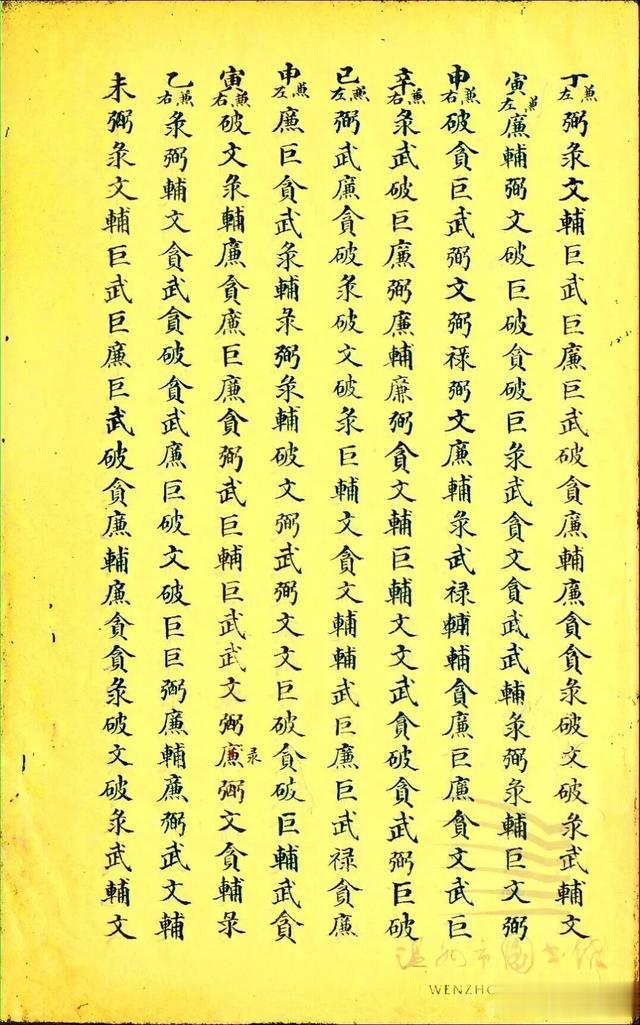 丁兼左弼彔文輔巨武巨廉巨武破貪廉輔廉貪貪彔破文破彔武輔文
寅兼左廉輔弼文破巨破貪破巨彔武貪文貪武武輔彔弼彔輔巨文弼
申兼右破貪巨武弼文弼禄弼文廉輔彔武禄輔輔貪廉巨廉貪文武巨
辛兼右彔武破巨廉弼廉輔廉弼貪文輔巨輔文文武貪破貪武弼巨破
巳兼左弼武廉貪破彔破文破彔巨輔文貪文輔輔武巨廉巨武禄貪廉
申兼左廉巨貪武彔輔彔弼彔輔破文弼武弼文文巨破貪破巨輔武貪
寅兼右破文彔輔廉貪廉巨廉貪弼武巨輔巨武武文弼廉彔弼文貪輔彔
乙兼右彔弼輔文貪武貪破貪武廉巨破文破巨巨弼廉輔廉弼武文輔
未弼彔文輔巨武巨廉巨武破貪廉輔廉貪貪彔破文破彔武輔文
温州市图书馆
WENZHO